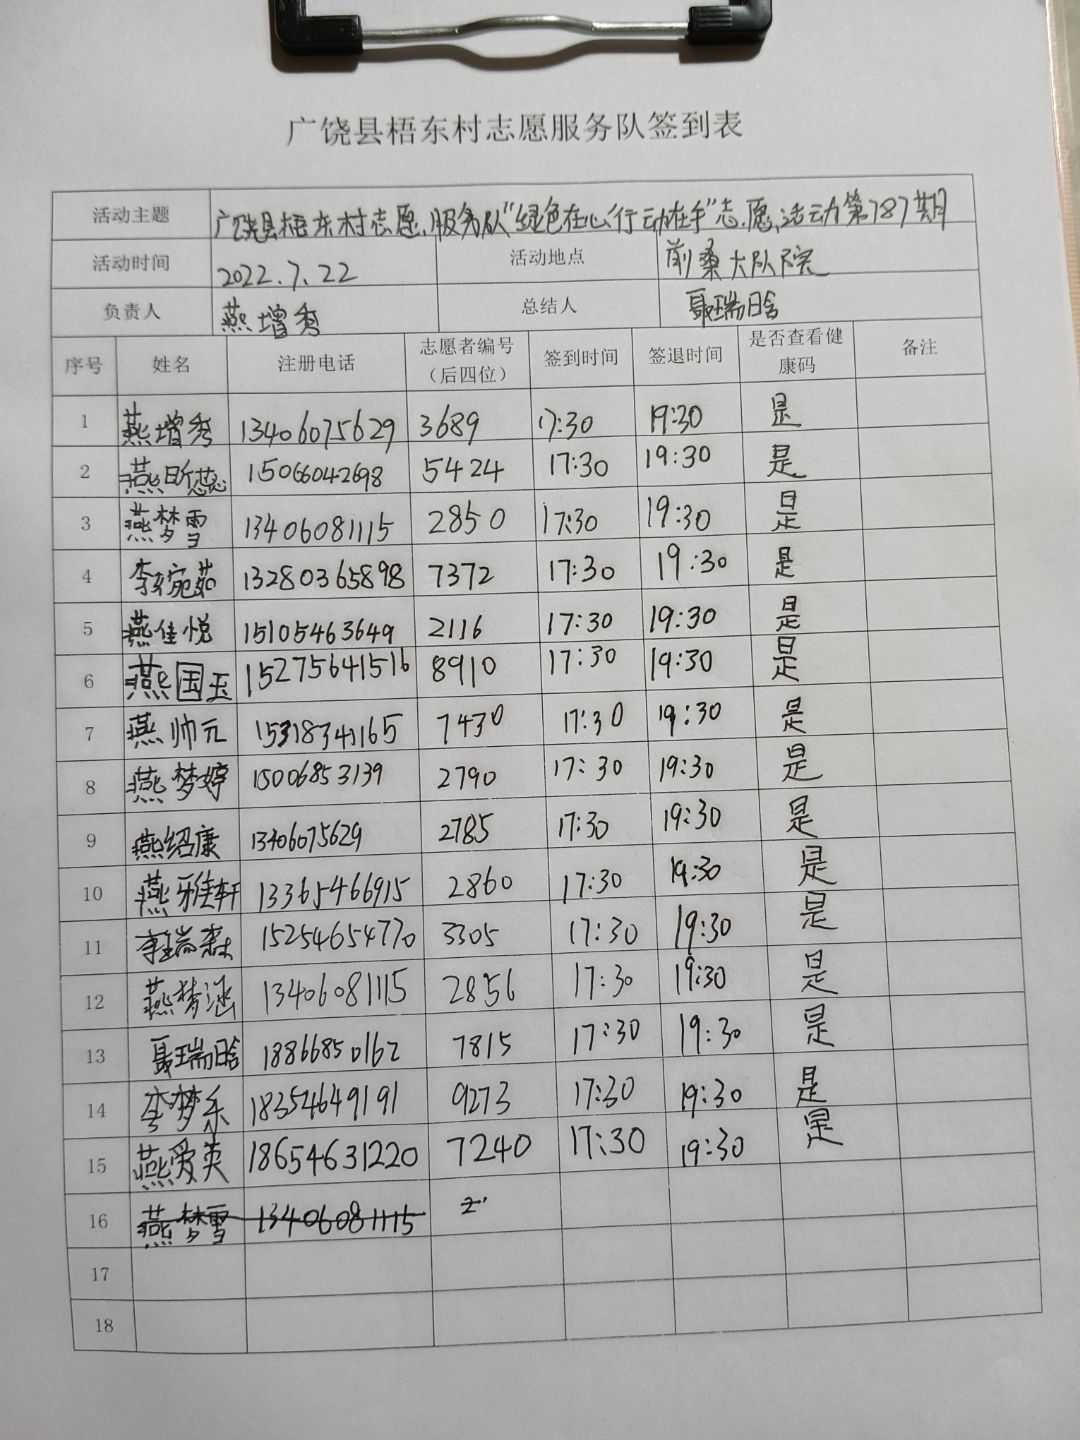 广饶县梧东村志愿服务队签到表
活动主题 广饶县梧东村志愿服务队“绿色在心行动在手”志愿活动第787期
活动时间 2022.7.22 活动地点 前桑大队院
负责人 燕增秀 总结人 聂瑞晗
序号 姓名 注册电话 志愿者编号（后四位） 签到时间 签退时间 是否查看健康码 备注
1 燕增秀 13406075629 3689 17:30 19:30 是
2 燕昕蕊 15066042698 5424 17:30 19:30 是
3 燕梦雪 13406081115 2850 17:30 19:30 是
4 李宛茹 13280365898 7372 17:30 19:30 是
5 燕佳悦 15105463649 2116 17:30 19:30 是
6 燕国玉 15275641516 8910 17:30 19:30 是
7 燕帅元 15318341165 7430 17:30 19:30 是
8 燕梦婷 15006853139 2790 17:30 19:30 是
9 燕绍康 13406075629 2785 17:30 19:30 是
10 燕雅轩 13365466915 2860 17:30 19:30 是
11 瑞森 15254654770 3305 17:30 19:30 是
12 燕梦涵 13406081115 2856 17:30 19:30 是
13 聂瑞晗 18866850162 7815 17:30 19:30 是
14 李梦乐 18354649191 9273 17:30 19:30 是
15 燕爱英 18654631220 7240 17:30 19:30 是
16 燕梦雪 13406081115
17
18